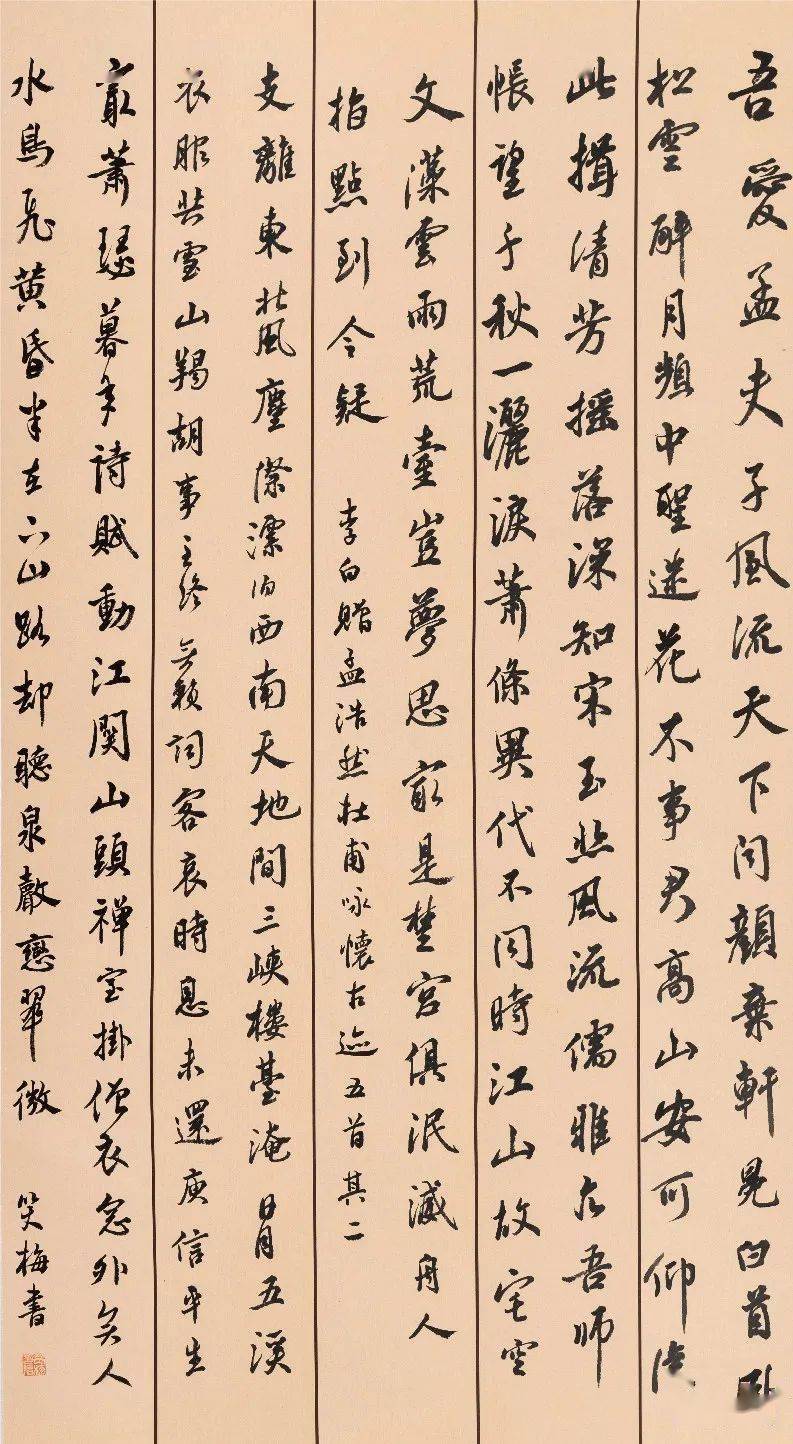 吾愛孟夫子風流天下聞顏棄軒冕白首卧
松雲醉月頻中聖迷花不事君高山安可仰徒
此揖清芳搖落深知宋玉悲風流儒雅亦吾師
悵望千秋一灑淚蕭條異代不同時江山故宅空
文藻雲雨荒臺豈夢思最是楚宮俱泯滅舟人
指點到今疑 李白贈孟浩然杜甫咏懷古迹五首其二
支離東北風塵際漂泊西南天地間三峽樓臺淹日月五溪
衣服共雲山羯胡事主終無賴詞客哀時且未還庾信平生
最蕭瑟暮年詩賦動江關山頭禪室掛僧衣窗外無人
水鳥飛黃昏半在下山路却聽泉聲戀翠微 笑梅書